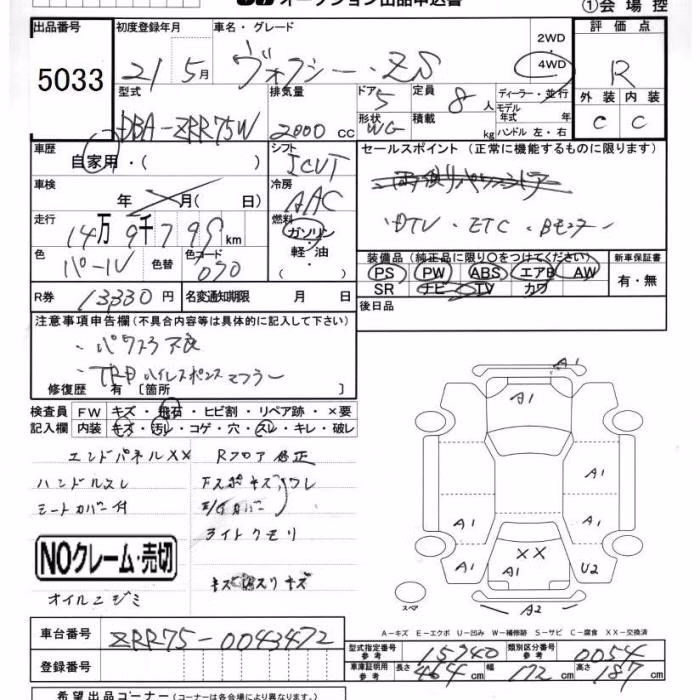 オークション出品申込書
①会場控
出品番号
5033
初度登録年月
21年5月
車名・グレード
ヴォクシー・ZS
2WD
4WD
評価点
R
外装 内装
C C
型式
DBA-ZRR75W
排気量
2000 cc
ドア 5
形状 WG
定員 8 人
積載 kg
ディーラー・並行
モデル年式 年
ハンドル 左・右
車歴
自家用・( )
シフト
ICVT
車検
年 月( 日)
冷房
AAC
走行
14万9千795km
燃料
ガソリン・
軽油・
( )
色
パール
色替
色コード
070
R券
13330円
名変通知期限 月 日
セールスポイント (正常に機能するものに限ります)
DTV・ETC・Bモニター
装備品 (純正品に限り○をつけてください)
PS PW ABS エアB AW
SR ナビ TV カワ
新車保証書
有・無
後日品
注意事項申告欄(不具合内容等は具体的に記入して下さい)
・パワスラ不良
・TRDハイレスポンスマフラー
修復歴 有 [箇所 ]
検査員記入欄
FW キズ・飛石・ヒビ割・リペア跡・×要
内装 キズ・汚レ・コゲ・穴・スレ・キレ・破レ
エンドパネルXX Rフロア修正
ハンドルスレ Fスポキズワレ
シートカバー付
ライトクモリ
NOクレーム・売切
オイルニジミ
A1
A1
A1
A1
A1
A1
XX
A1
U2
A2
スペア
A-キズ E-エクボ U-凹み W-補修跡 S-サビ C-腐食 XX-交換済
車台番号
ZRR75-0043472
登録番号
型式指定番号
参考
15940
類別区分番号
参考
0054
車庫証明用
参考
長さ 464cm
幅 172cm
高さ 187cm
希望出品コーナー(コーナーは各会場により異なります)